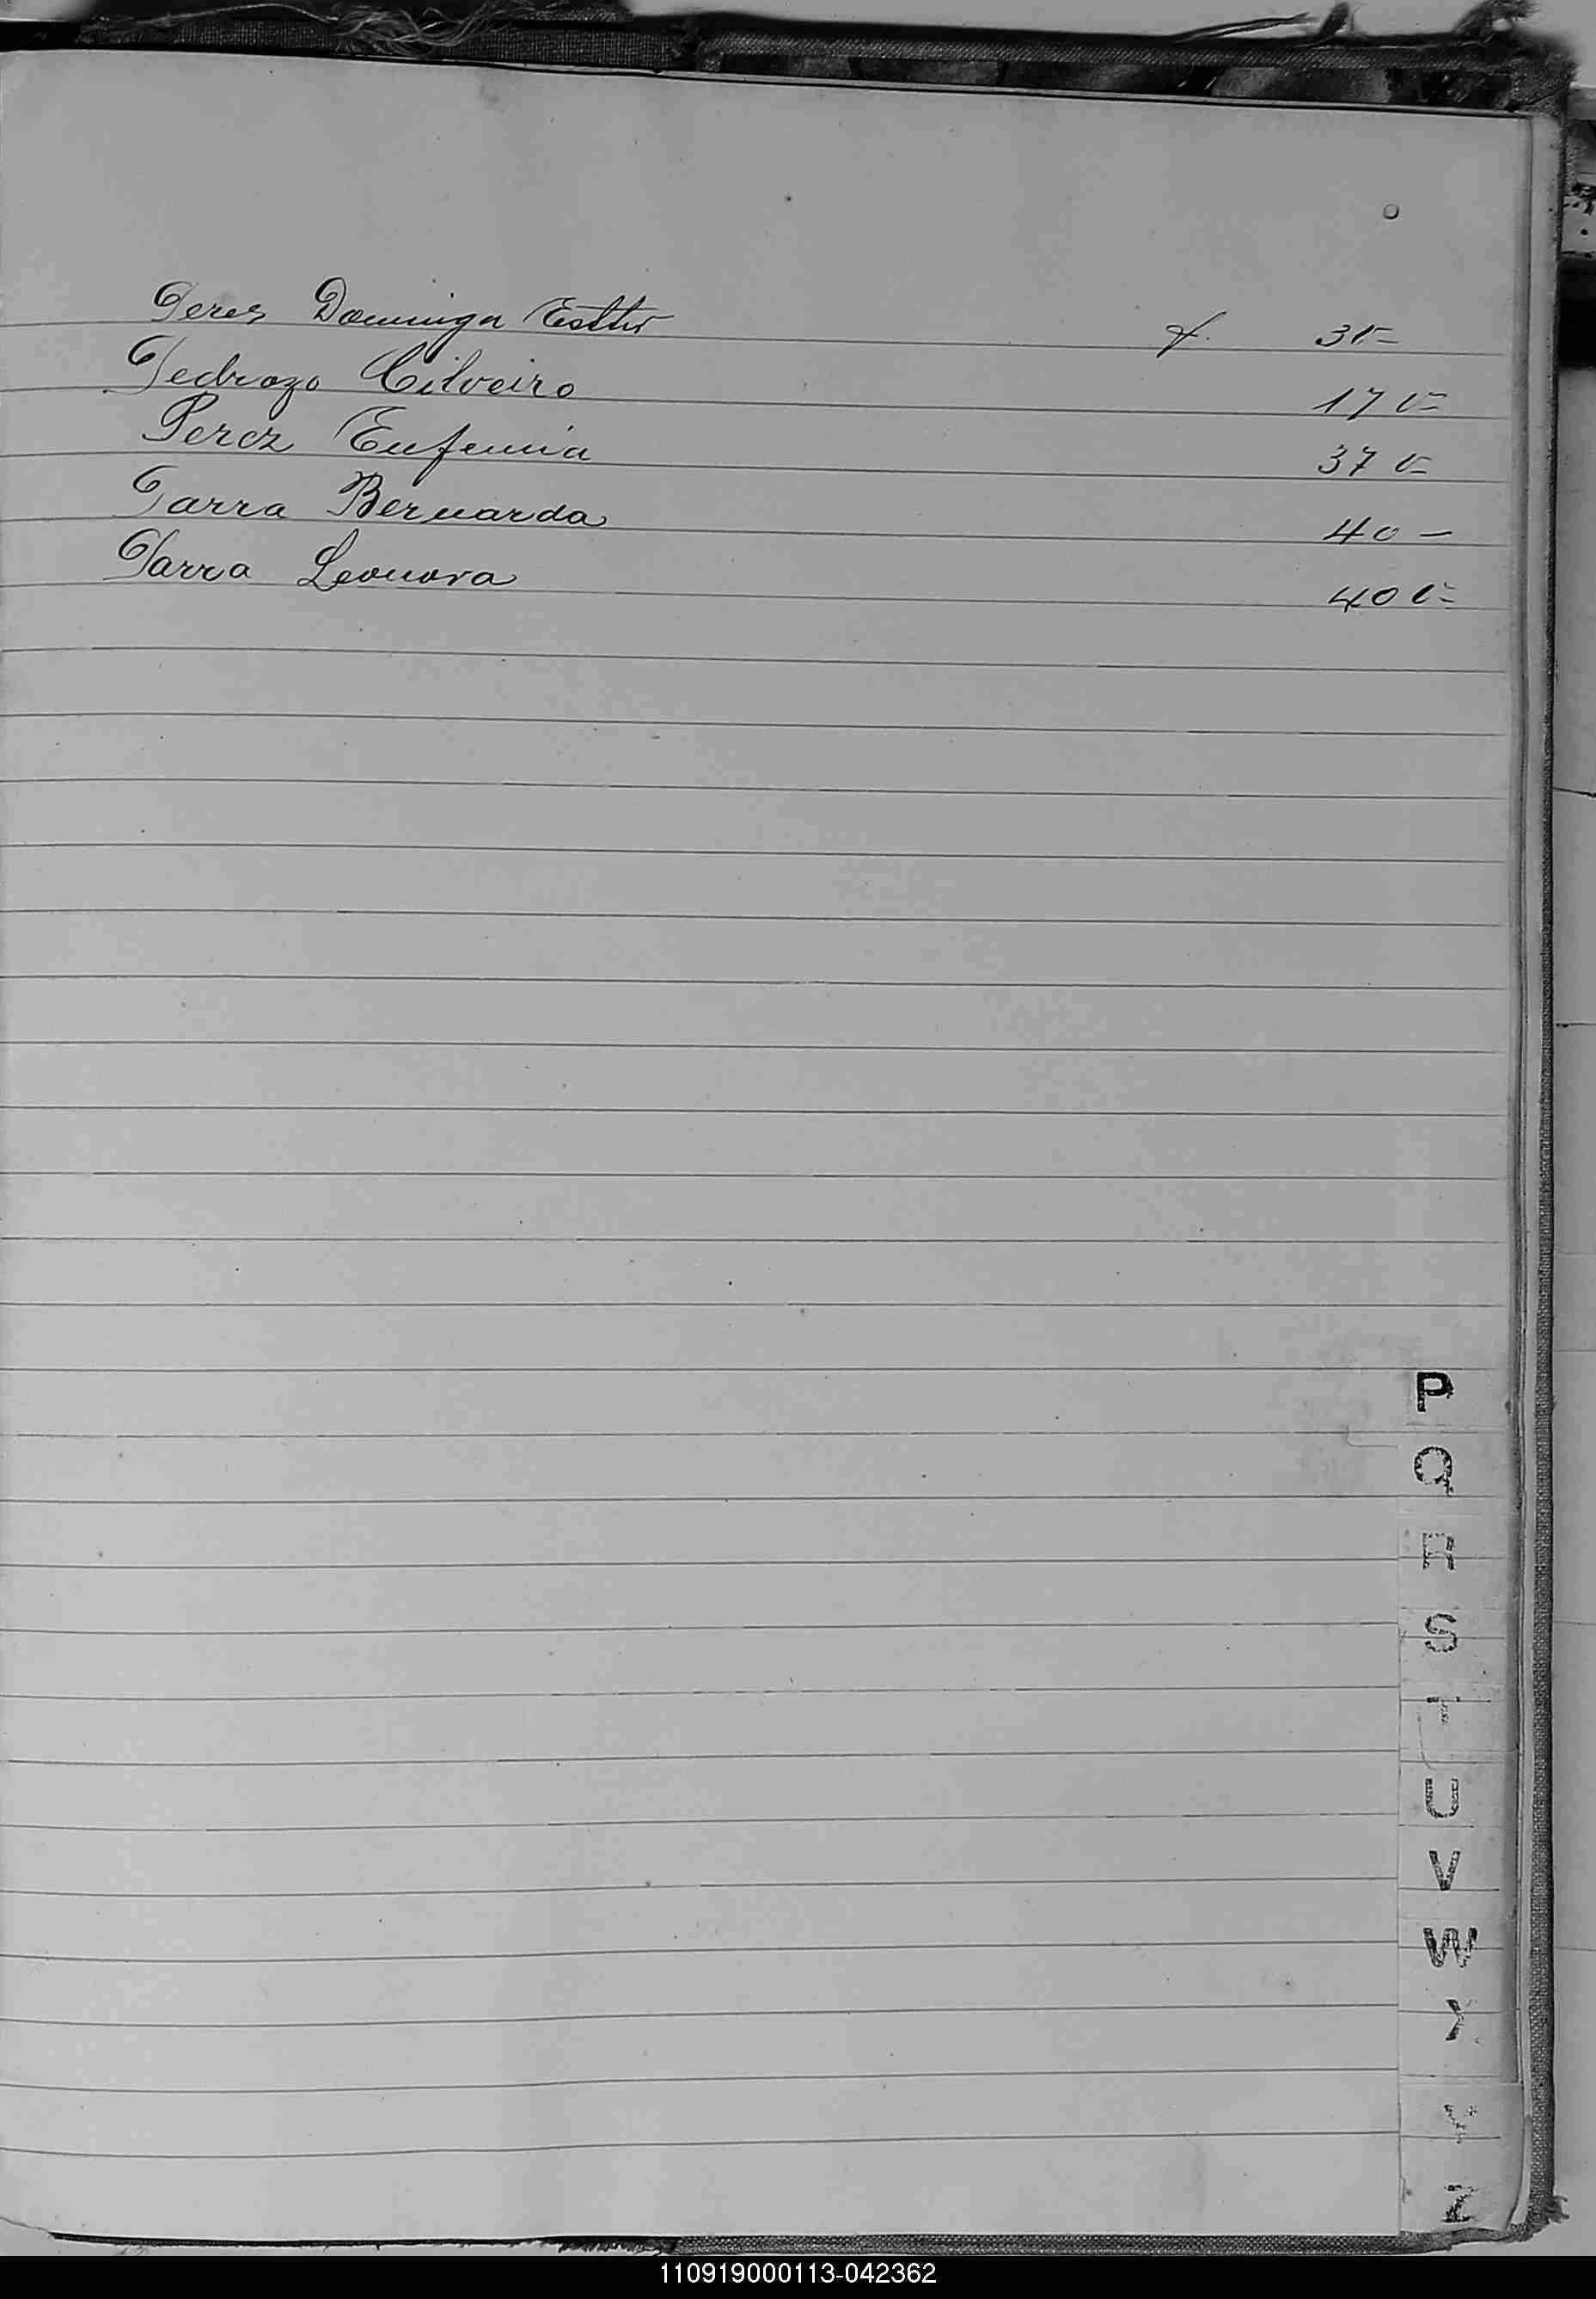 Peres Dominga Esther f. 3 v=
Pedrozo Cilveiro 17 v=
Perez Eufemia 37 v=
Parra Bernarda 40 -
Parra Leonora 40 v=
P
Q
R
S
T
U
V
W
X
Y
Z
110919000113-042362